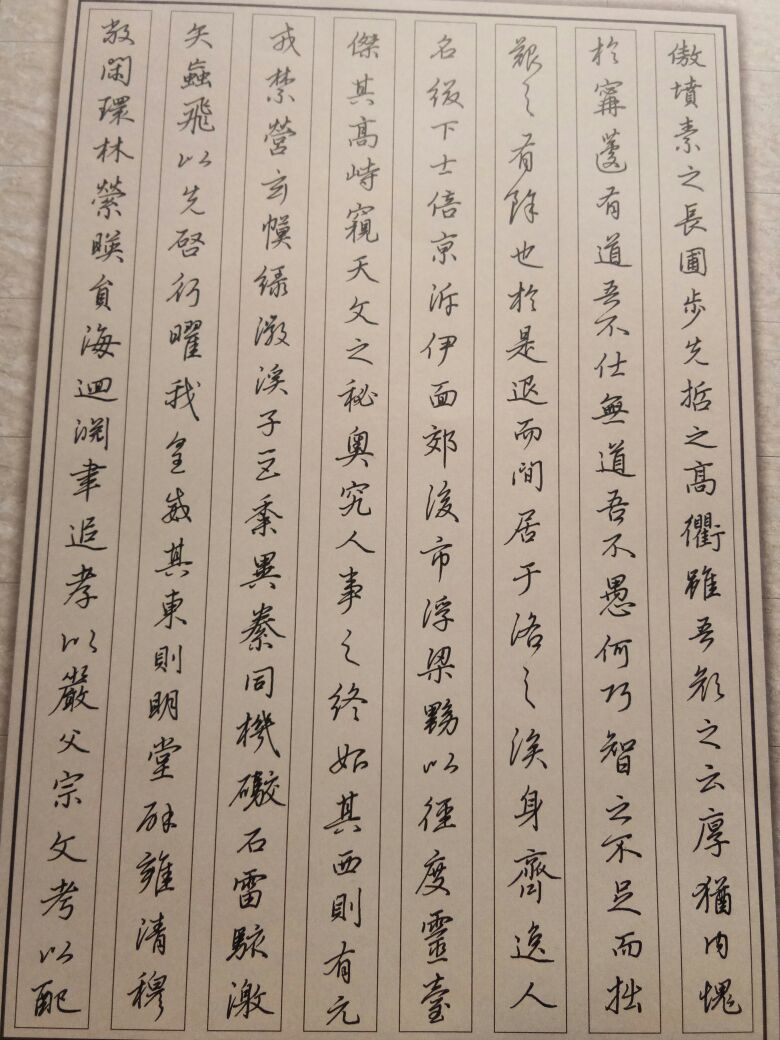 傲墳素之長圃步先哲之高衢雖吾顏之云厚猶内愧
於甯蘧有道吾不仕無道吾不愚何巧智之不足而拙
艱之有餘也於是退而閒居于洛之涘身齊逸人
名綴下士倍京泝伊面郊後市浮梁黝以徑度靈臺
傑其高峙窺天文之秘奧究人事之終始其西則有元
戎禁營玄幙綠徽溪子巨黍異絭同機礮石雷駭激
矢蝱飛以先啓行曜我皇威其東則明堂辟雍清穆
敞閑環林縈映員海迴淵聿追孝以嚴父宗文考以配